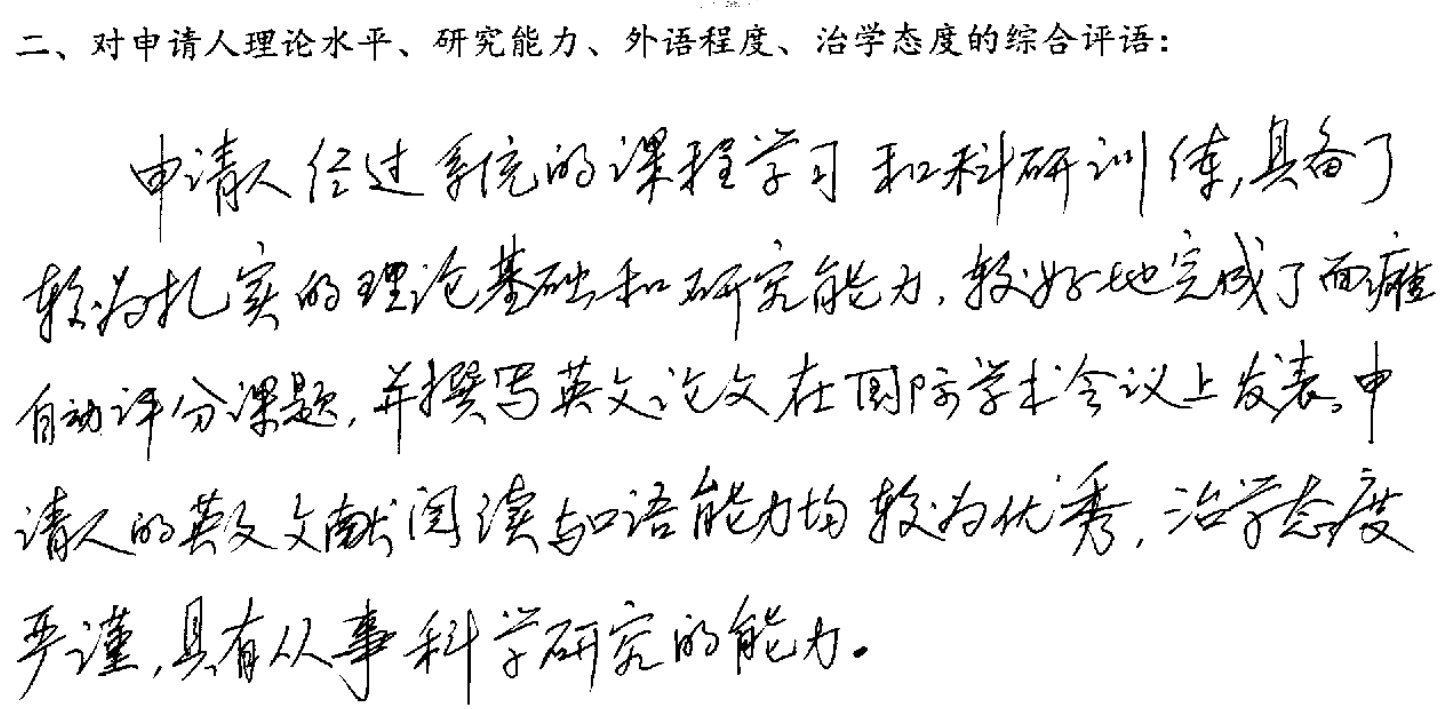 二、对申请人理论水平、研究能力、外语程度、治学态度的综合评语：
申请人经过系统的课程学习和科研训练,具备了
较为扎实的理论基础和研究能力,较好地完成了面瘫
自动评分课题,并撰写英文论文在国际学术会议上发表。申
请人的英文文献阅读与口语能力均较为优秀,治学态度
严谨,具有从事科学研究的能力。